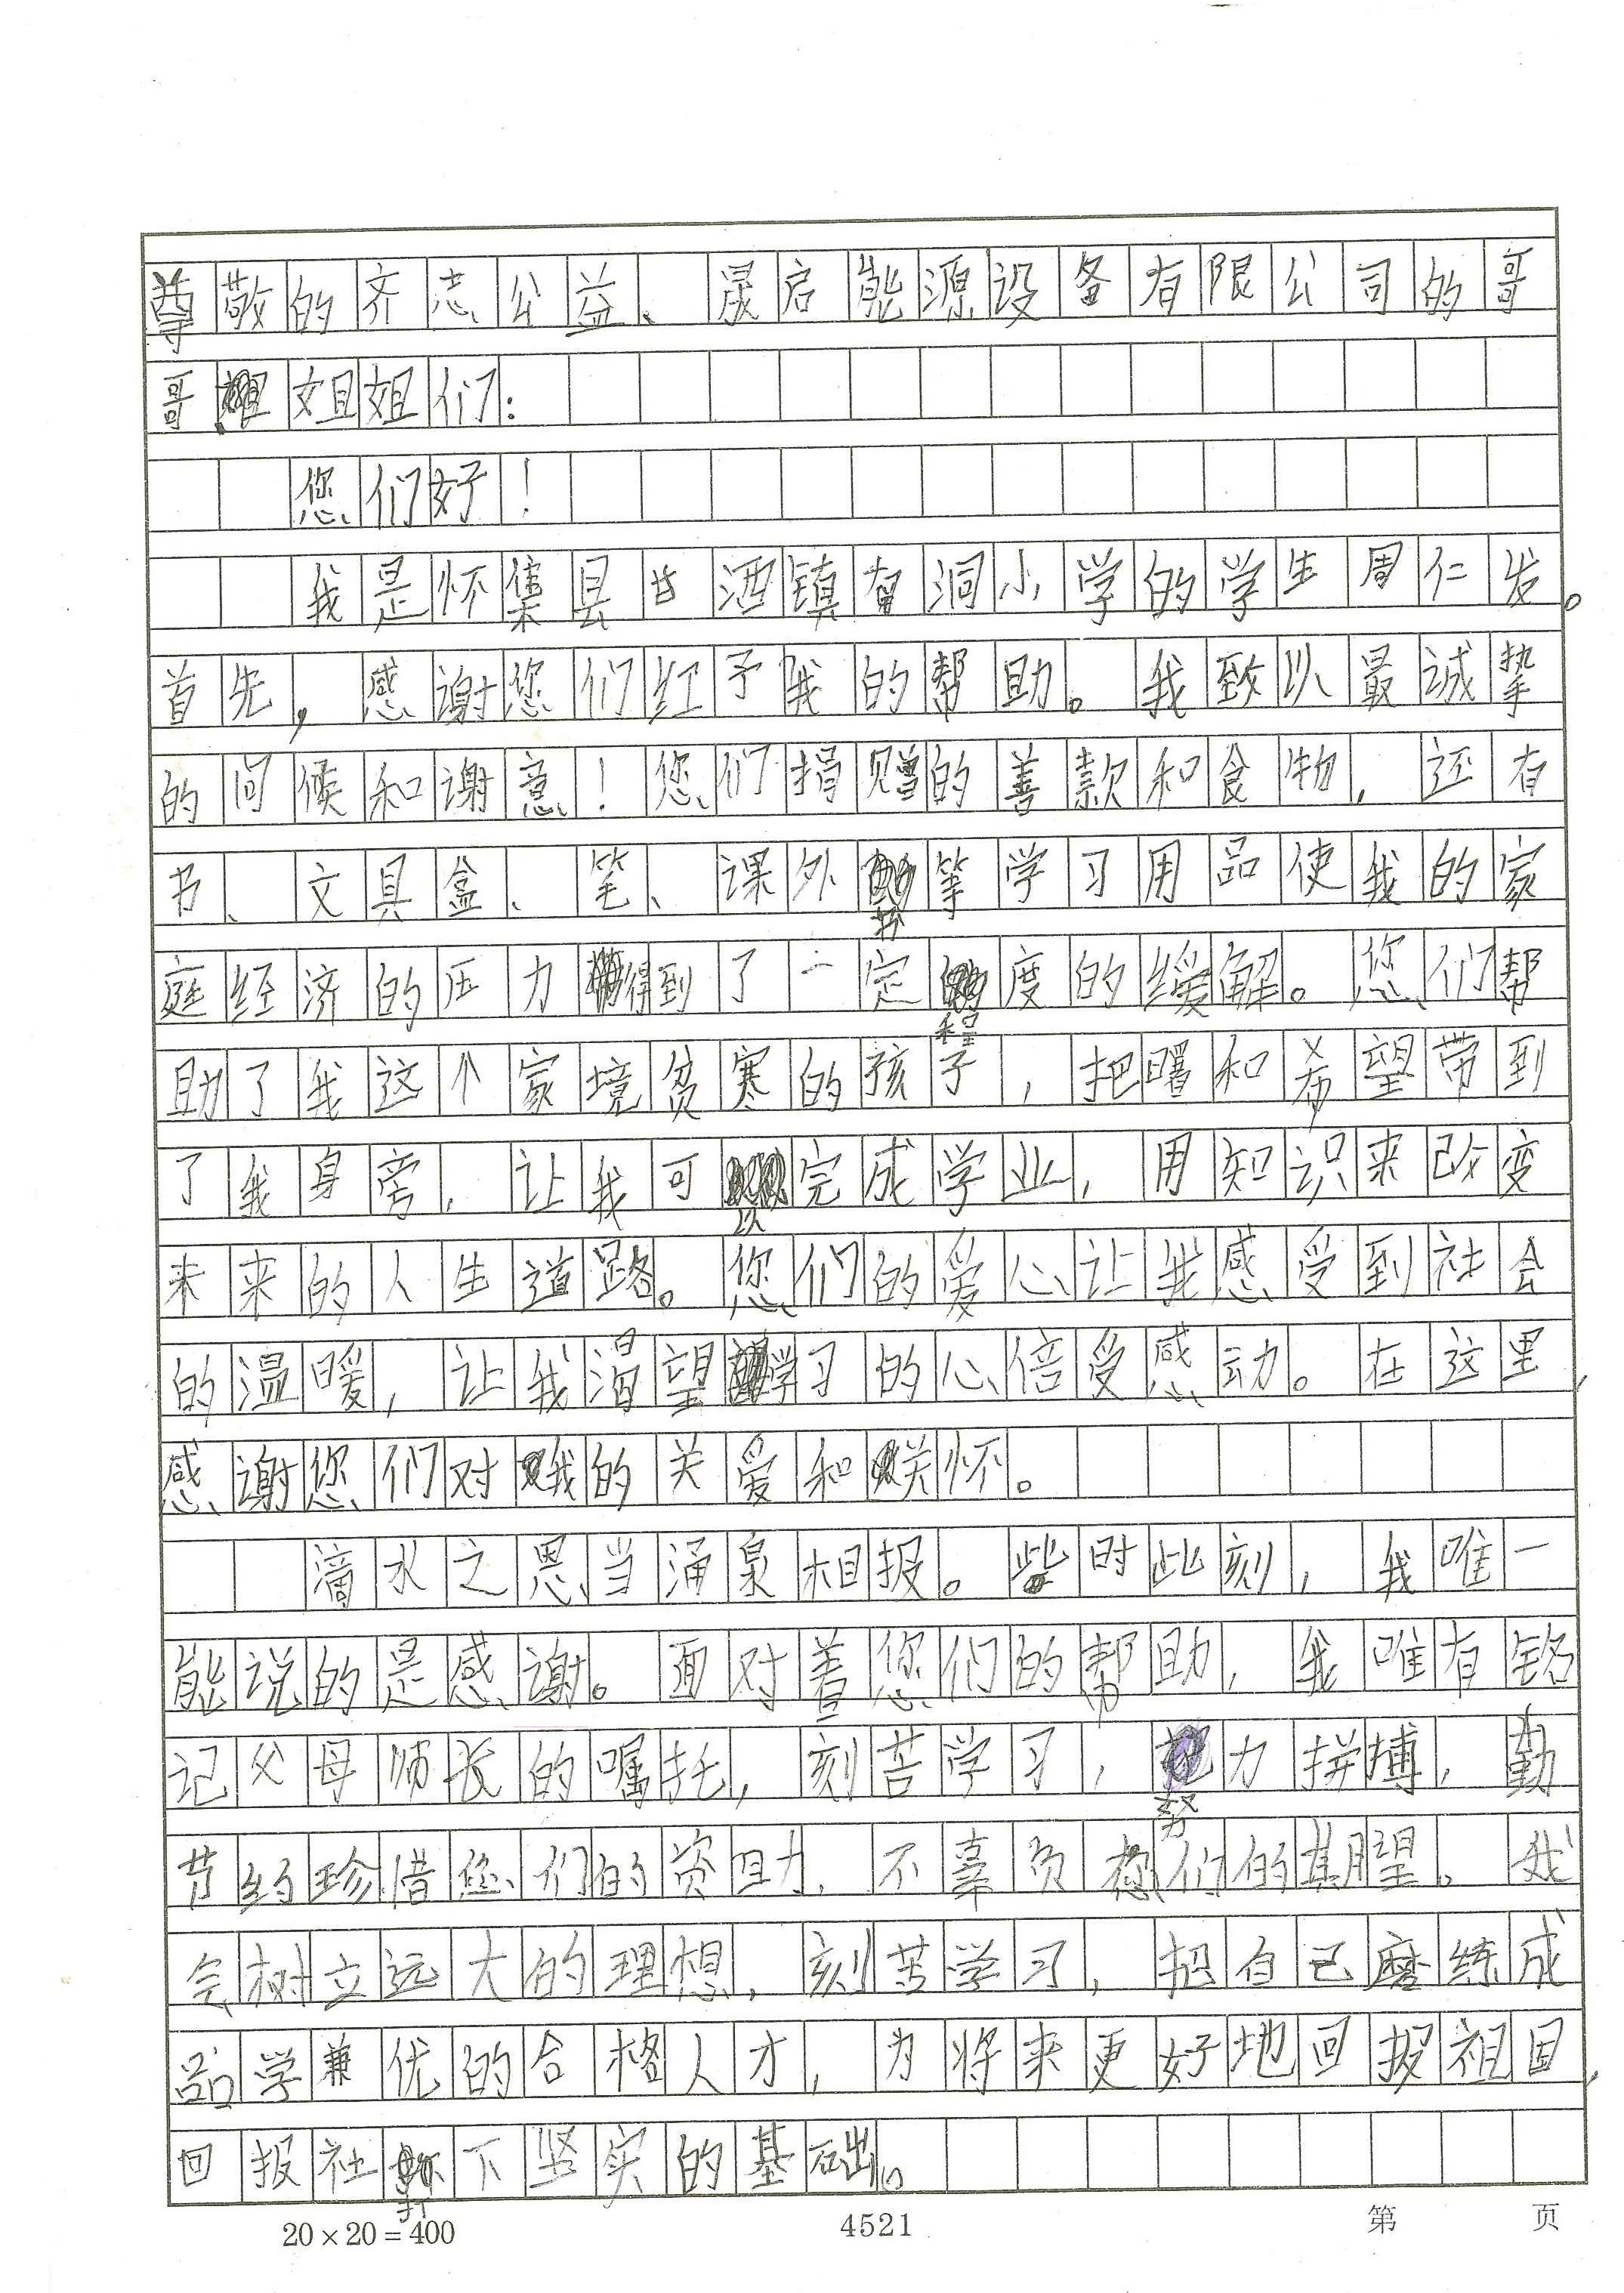 尊敬的齐志公益、晟启能源设备有限公司的哥
哥姐姐们：
您们好！
我是怀集县甘洒镇有洞小学的学生周仁发。
首先，感谢您们红予我的帮助。我致以最诚挚
的问候和谢意！您们捐赠的善款和食物，还有
书、文具盒、笔、课外书等学习用品使我的家
庭经济的压力得到了一定程度的缓解。您们帮
助了我这个家境贫寒的孩子，把曙和希望带到
了我身旁，让我可以完成学业，用知识来改变
未来的人生道路。您们的爱心让我感受到社会
的温暖，让我渴望学习的心倍受感动。在这里，
感谢您们对我的关爱和关怀。
滴水之恩当涌泉相报。此时此刻，我唯一
能说的是感谢。面对着您们的帮助，我唯有铭
记父母师长的嘱托，刻苦学习，努力拼搏，勤
节约珍惜您们的资助，不辜负您们的期望。我
会树立远大的理想，刻苦学习，把自己磨练成
品学兼优的合格人才，为将来更好地回报祖国，
回报社打下坚实的基础。
20×20=400 4521 第 页